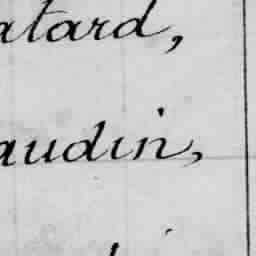 atard,
audin,